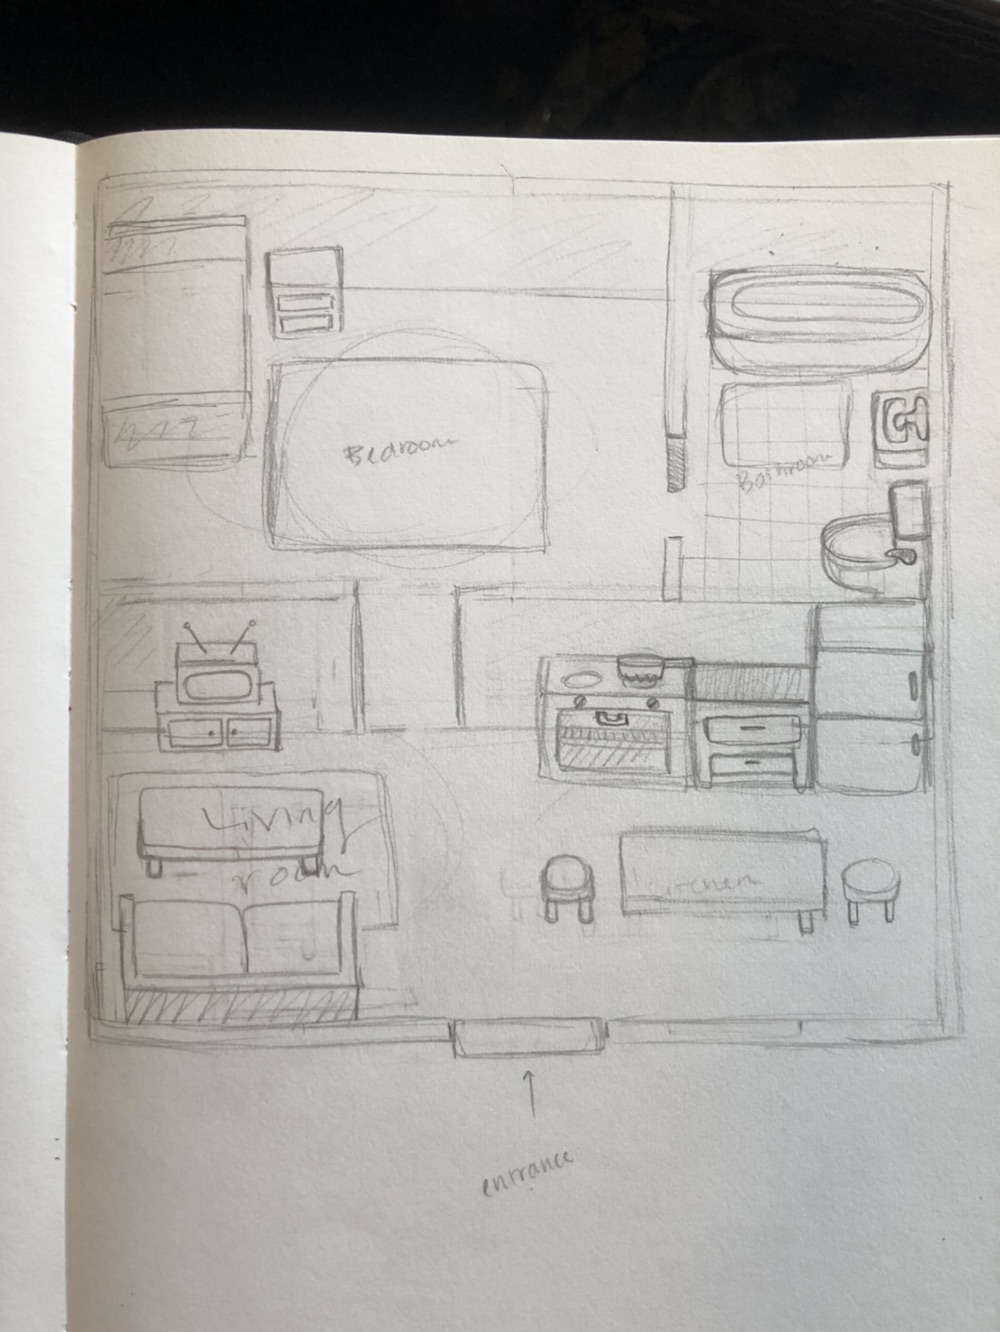 Bedroom
Bathroom
Living
room
kitchen
entrance